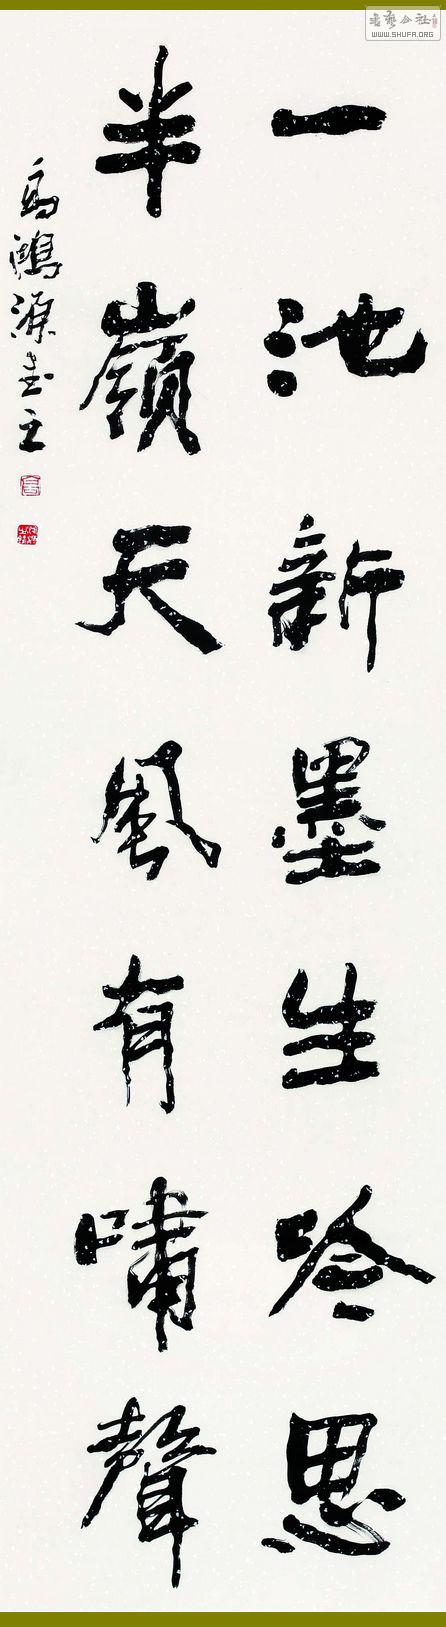 一池新墨生吟思
半嶺天風有嘯聲
高鴻源書之
書藝公社
WWW.SHUFA.ORG